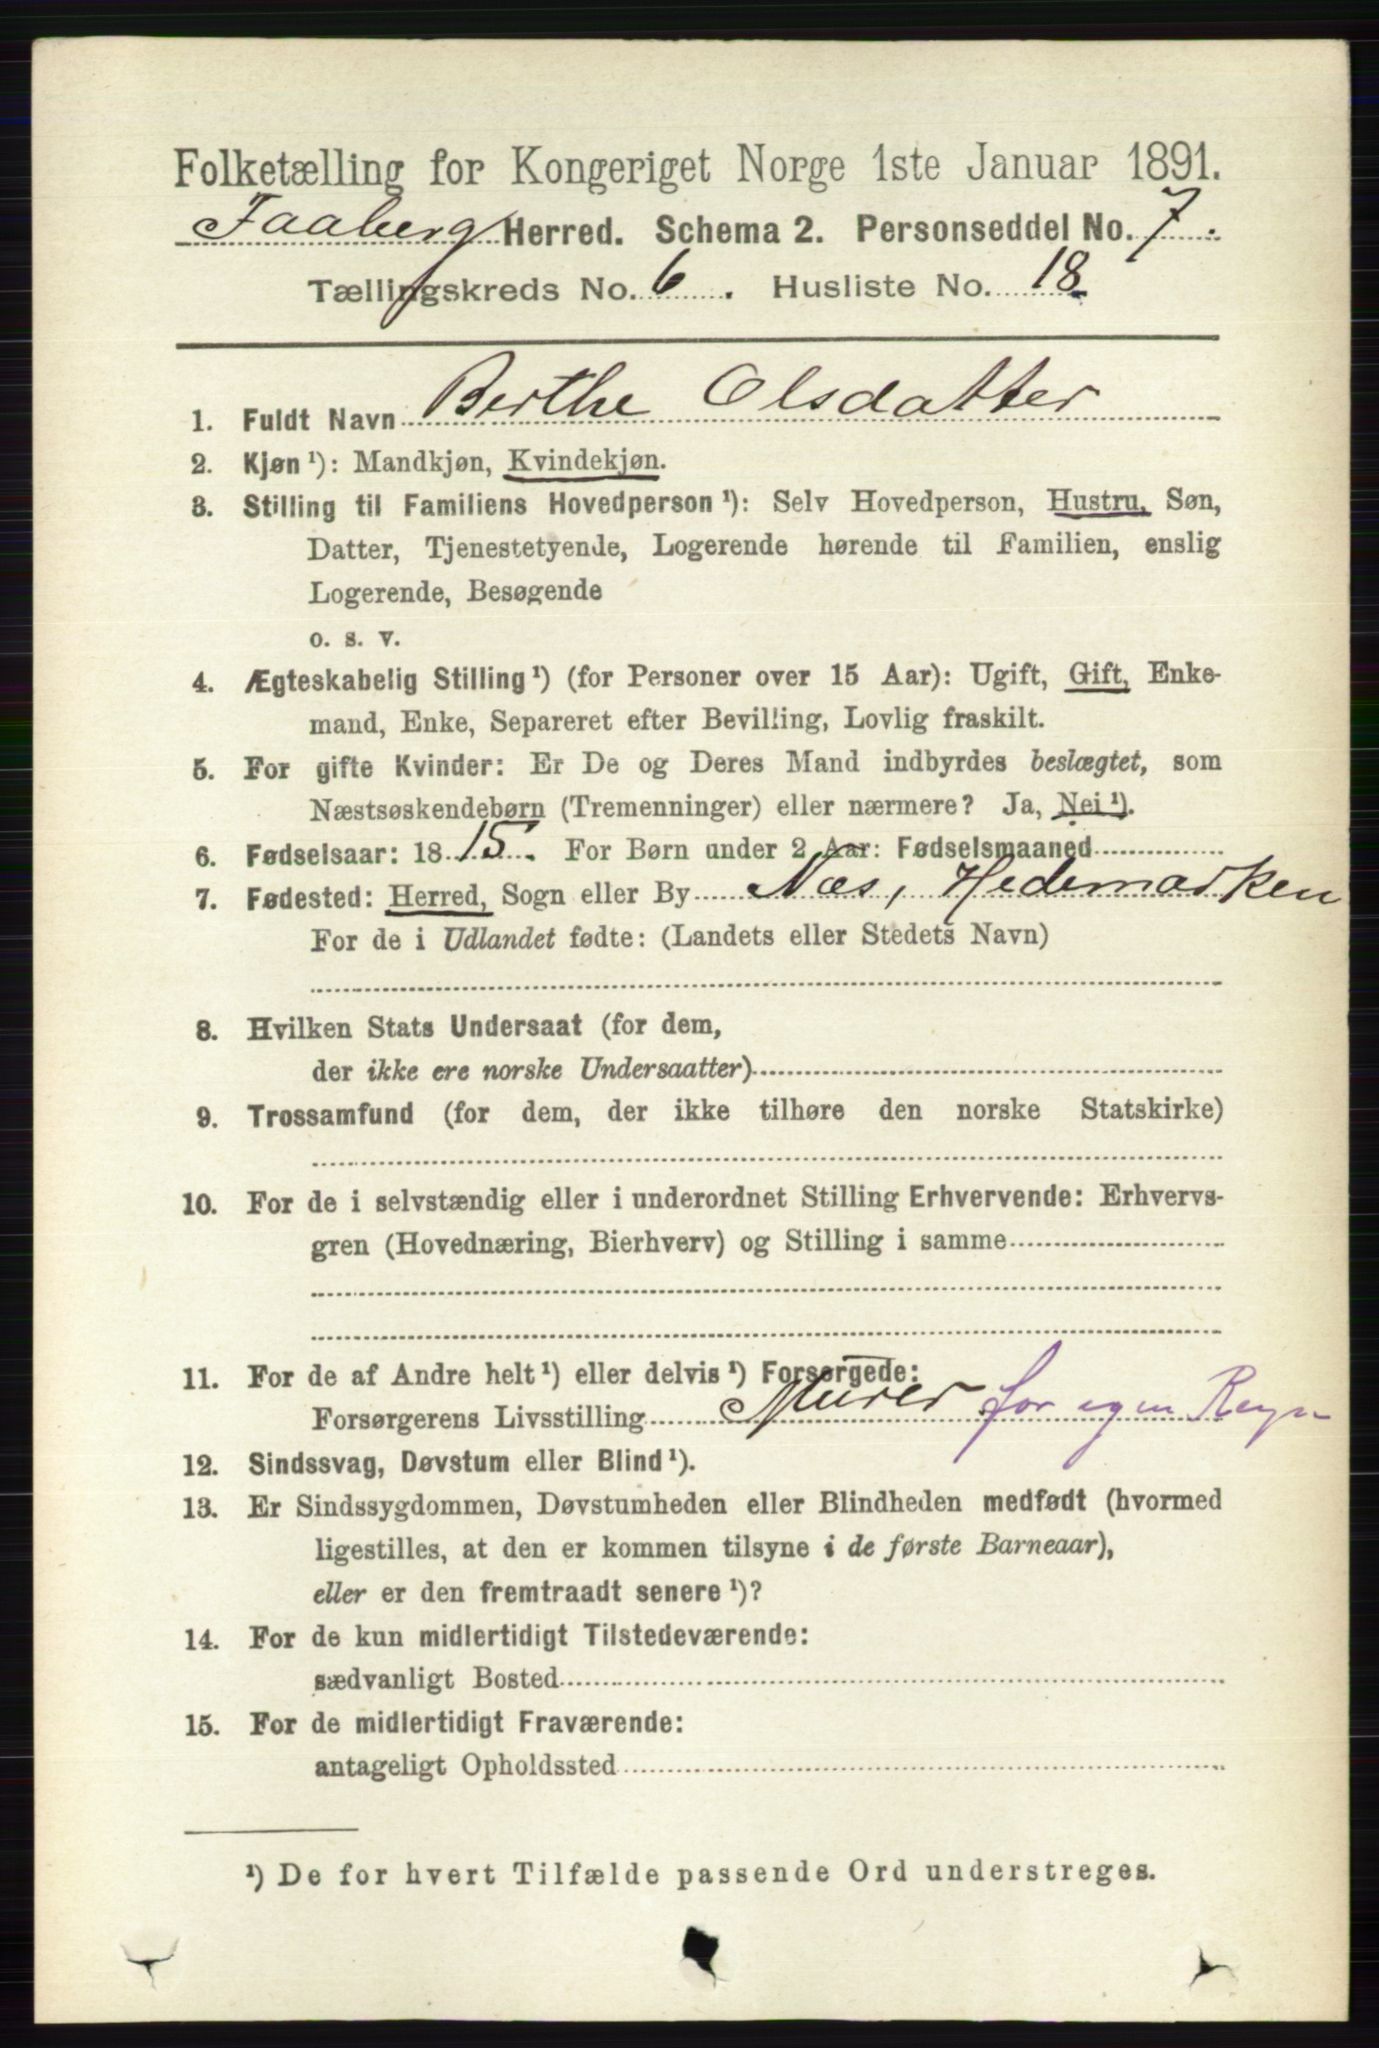 Folketælling for Kongeriget Norge 1ste Januar 1891.
Faaberg Herred. Schema 2. Personseddel No. 7.
Tællingskreds No. 6. Husliste No. 18
1. Fuldt Navn Berthe Olsdatter
2. Kjøn ¹): Mandkjøn, Kvindekjøn.
3. Stilling til Familiens Hovedperson ¹): Selv Hovedperson, Hustru, Søn,
Datter, Tjenestetyende, Logerende hørende til Familien, enslig
Logerende, Besøgende
o. s. v.
4. Ægteskabelig Stilling ¹) (for Personer over 15 Aar): Ugift, Gift, Enke-
mand, Enke, Separeret efter Bevilling, Lovlig fraskilt.
5. For gifte Kvinder: Er De og Deres Mand indbyrdes beslægtet, som
Næstsøskendebørn (Tremenninger) eller nærmere? Ja, Nei ¹).
6. Fødselsaar: 1815. For Børn under 2 Aar: Fødselsmaaned
7. Fødested: Herred, Sogn eller By Næs, Hedemarken
For de i Udlandet fødte: (Landets eller Stedets Navn)
8. Hvilken Stats Undersaat (for dem,
der ikke ere norske Undersaatter)
9. Trossamfund (for dem, der ikke tilhøre den norske Statskirke)
10. For de i selvstændig eller i underordnet Stilling Erhvervende: Erhvervs-
gren (Hovednæring, Bierhverv) og Stilling i samme
11. For de af Andre helt ¹) eller delvis ¹) Forsørgede:
Forsørgerens Livsstilling Murer for egen Regn
12. Sindssvag, Døvstum eller Blind ¹).
13. Er Sindssygdommen, Døvstumheden eller Blindheden medfødt (hvormed
ligestilles, at den er kommen tilsyne i de første Barneaar),
eller er den fremtraadt senere ¹)?
14. For de kun midlertidigt Tilstedeværende:
sædvanligt Bosted
15. For de midlertidigt Fraværende:
antageligt Opholdssted
¹) De for hvert Tilfælde passende Ord understreges.